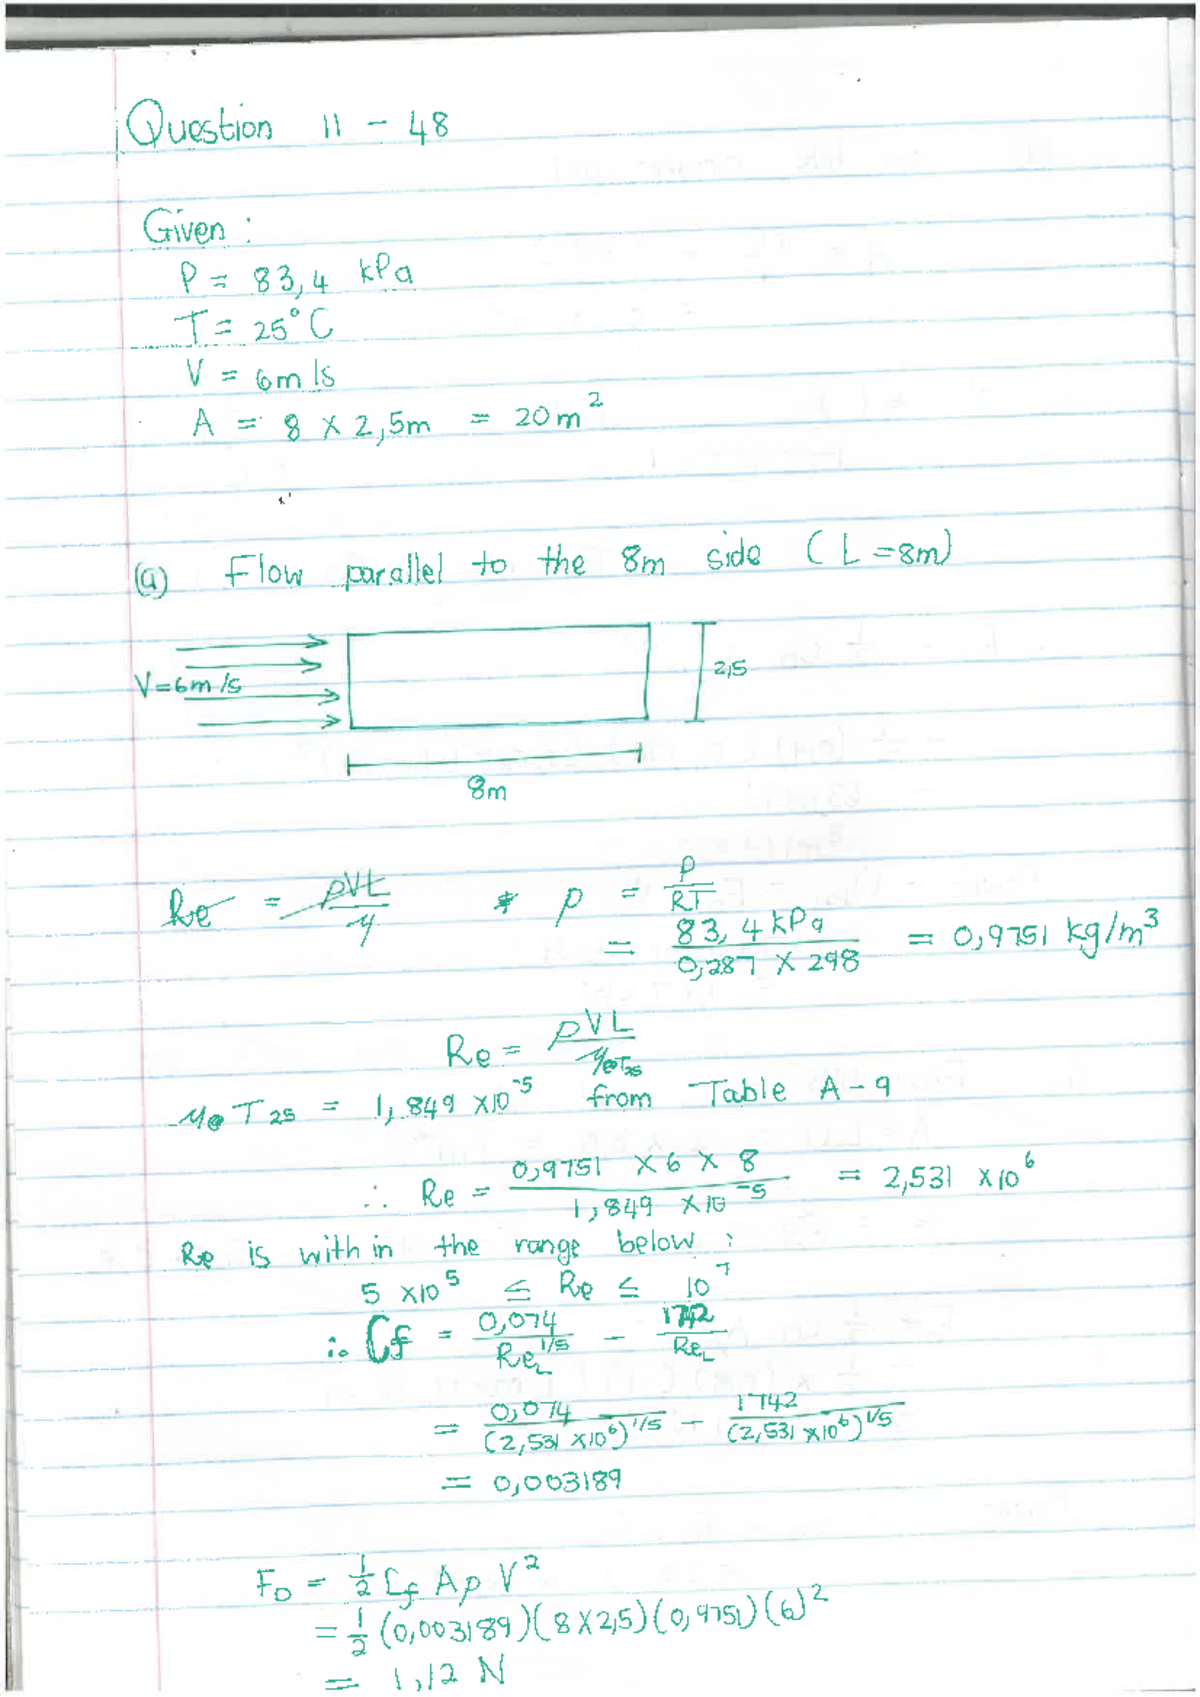 Question 11 - 48
Given :
P = 83,4 kPa
T = 25°C
V = 6m/s
A = 8 × 2,5m = 20m²
(a) Flow parallel to the 8m side (L=8m)
V=6m/s
2,5
8m
Re = ρVL/μ * ρ = P/RT
= 83,4 kPa / 0,287 × 298 = 0,9751 kg/m³
Re = ρVL/μ@T25
μ@T25 = 1,849 ×10⁻⁵ from Table A-9
∴ Re = 0,9751 × 6 × 8 / 1,849 ×10⁻⁵ = 2,531 ×10⁶
Re is within the range below :
5 ×10⁵ ≤ Re ≤ 10⁷
∴ Cf = 0,074/Re_L^1/5 - 1742/Re_L
= 0,074/(2,531 ×10⁶)^1/5 - 1742/(2,531 ×10⁶)^1/5
= 0,003189
F_D = ½ Cf Aρ V²
= ½ (0,003189)(8×2,5)(0,9751)(6)²
= 1,12 N